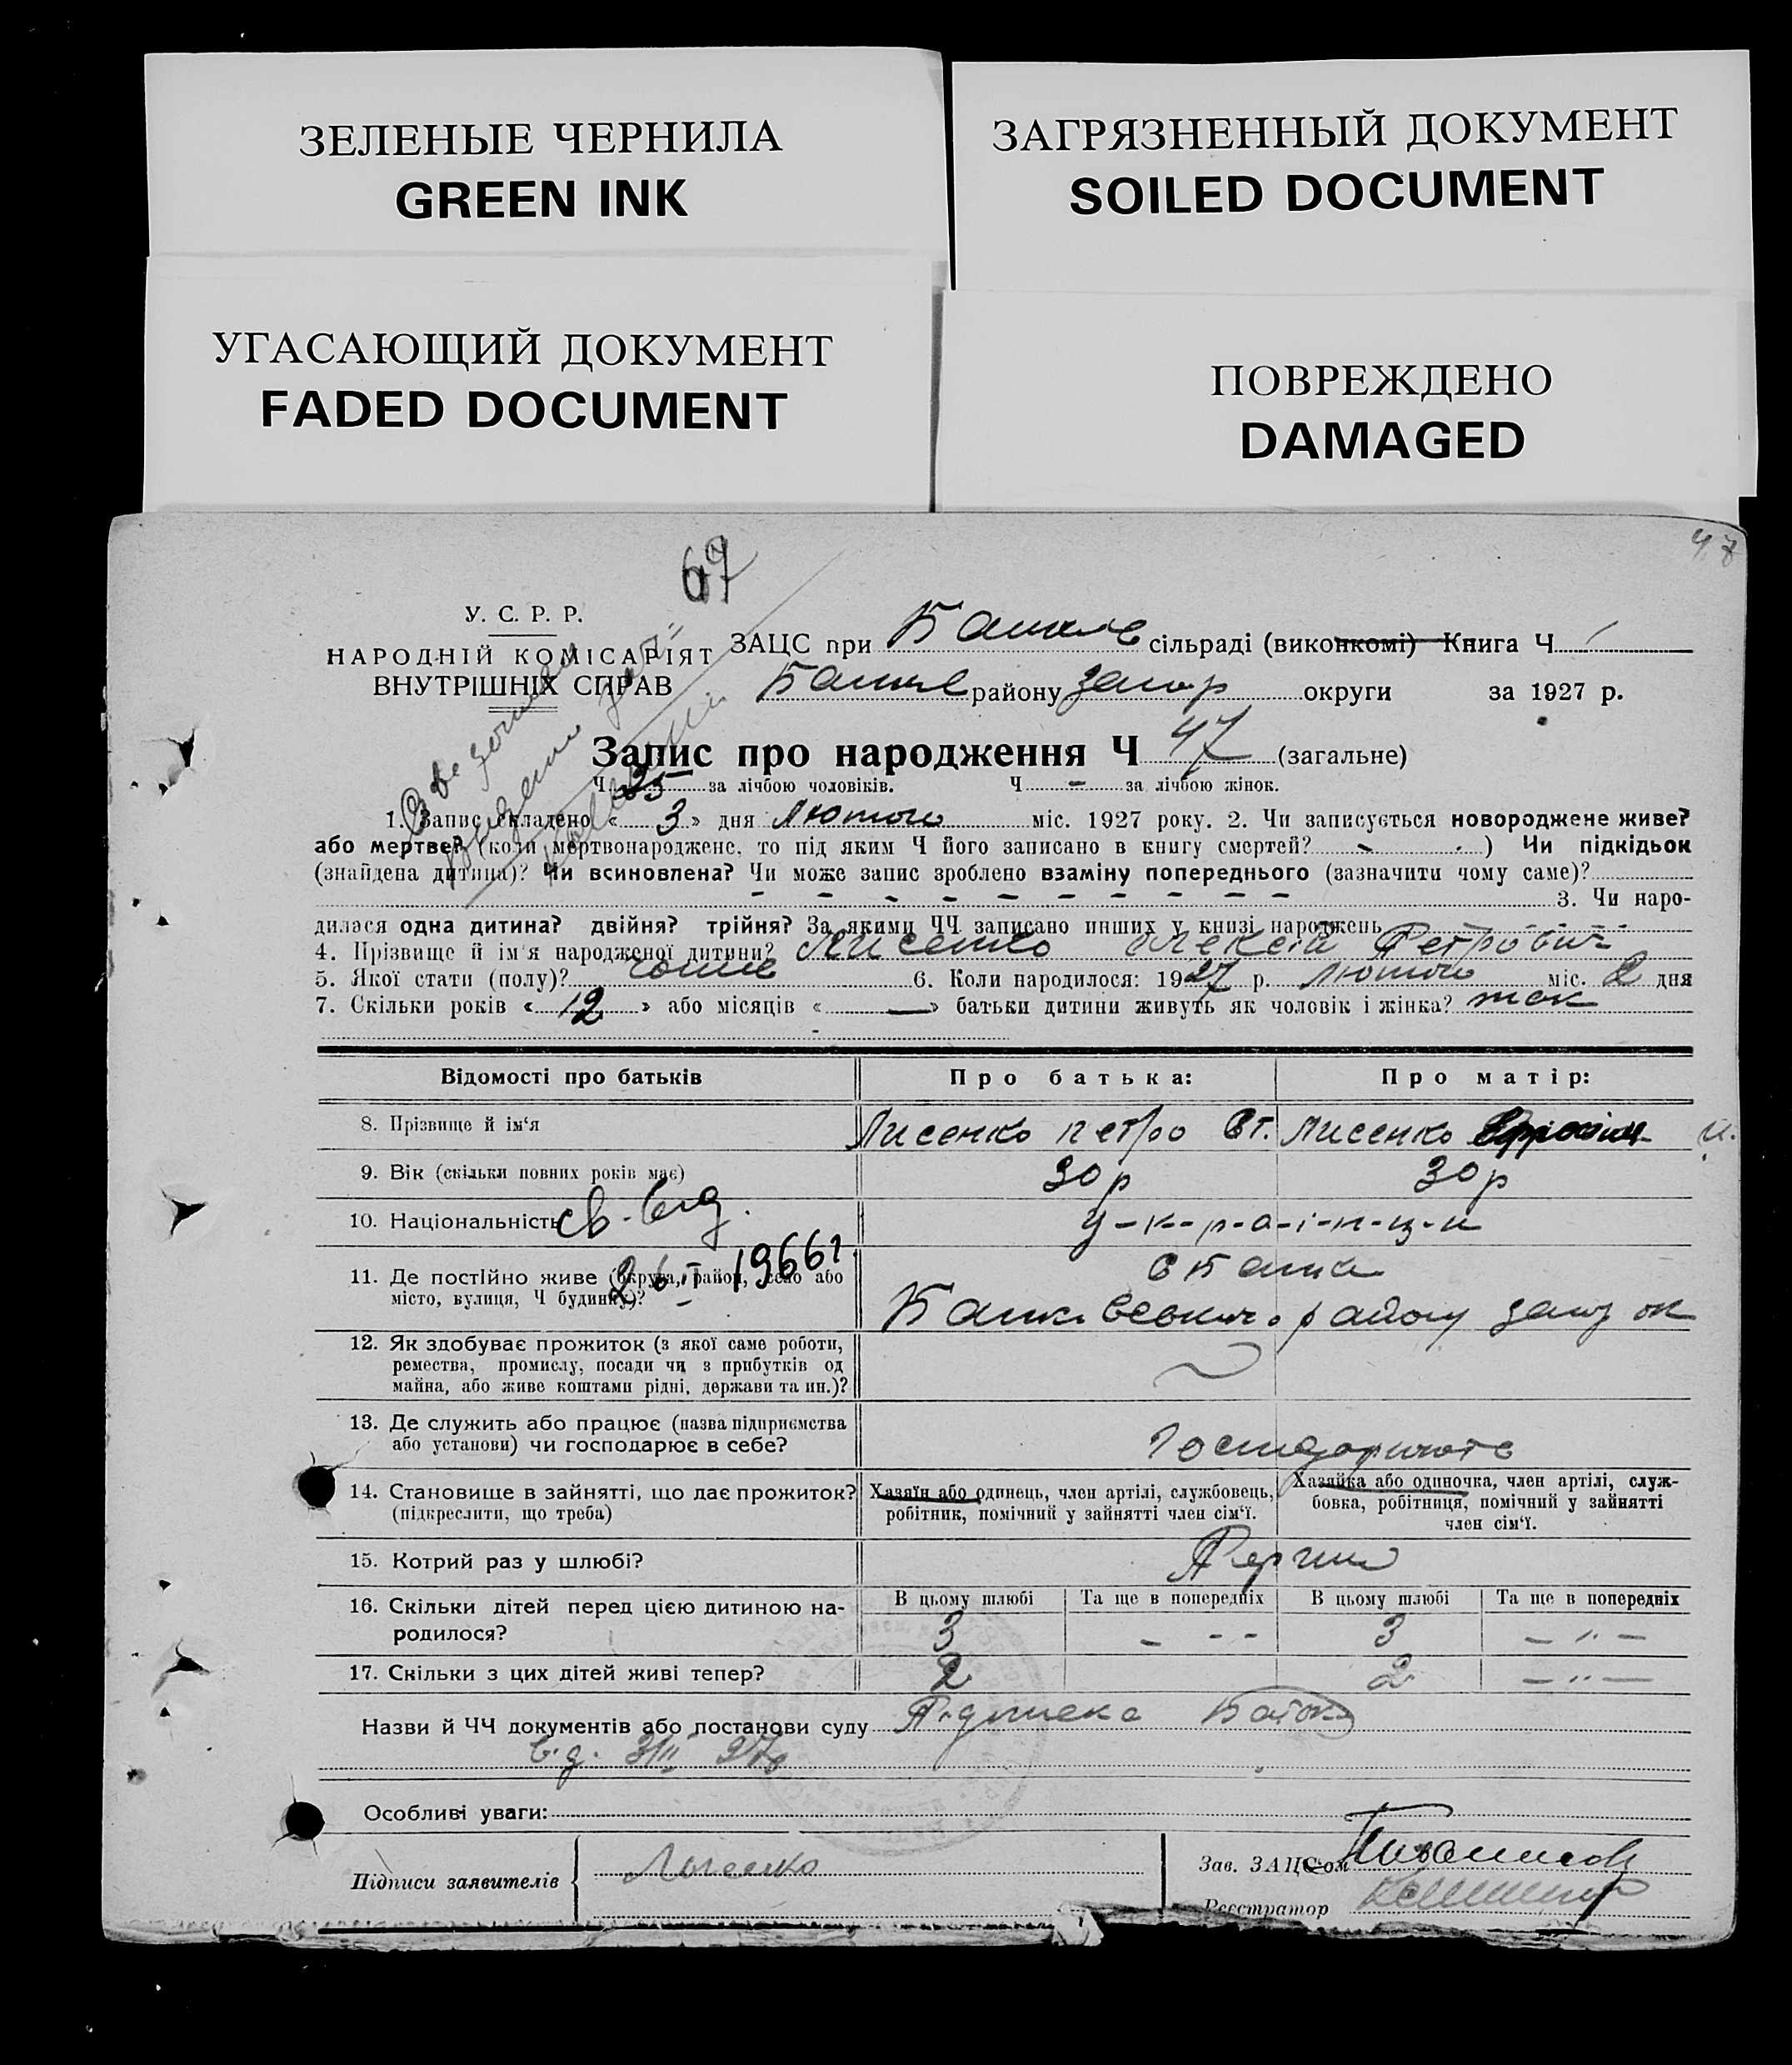 ЗЕЛЕНЫЕ ЧЕРНИЛА
GREEN INK
ЗАГРЯЗНЕННЫЙ ДОКУМЕНТ
SOILED DOCUMENT
УГАСАЮЩИЙ ДОКУМЕНТ
FADED DOCUMENT
ПОВРЕЖДЕНО
DAMAGED
47
67
У. С. Р. Р.
НАРОДНІЙ КОМІСАРІЯТ
ВНУТРІШНІХ СПРАВ
ЗАЦС при сільраді (виконкомі) Книга Ч
району округи за 1927 р.
Запис про народження Ч 47 (загальне)
Ч 25 за лічбою чоловіків. Ч - за лічбою жінок.
1. Запис складено « 3 » дня Лютого міс. 1927 року. 2. Чи записується новороджене живе?
або мертве? (коли мертвонароджене, то під яким Ч його записано в книгу смертей? - ) Чи підкідьок
(знайдена дитина)? Чи всиновлена? Чи може запис зроблено взаміну попереднього (зазначити чому саме)?
- - - - - - - - - 3. Чи наро-
дилася одна дитина? двійня? трійня? За якими ЧЧ записано инших у книзі народжень
4. Прізвище й ім'я народженої дитини? Лисенко Олексій Петрович
5. Якої стати (полу)? 6. Коли народилося: 1927 р. Лютого міс. 2 дня
7. Скільки років « 12 » або місяців « — » батьки дитини живуть як чоловік і жінка? так
Відомості про батьків Про батька: Про матір:
8. Прізвище й ім'я Лисенко Петро Лисенко
9. Вік (скільки повних років має) 30 р 30 р
10. Національність у-к-р-а-ї-н-ц-и
св. выд.
26/I - 1966 г.
11. Де постійно живе (округа, район, село або
місто, вулиця, Ч будинку)?
району
12. Як здобуває прожиток (з якої саме роботи,
ремества, промислу, посади чи з прибутків од
майна, або живе коштами рідні, держави та ин.)?
13. Де служить або працює (назва підприємства
або установи) чи господарює в себе?
14. Становище в зайнятті, що дає прожиток?
(підкреслити, що треба)
Хазяїн або одинець, член артілі, службовець,
робітник, помічний у зайнятті член сім'ї.
Хазяйка або одиночка, член артілі, служ-
бовка, робітниця, помічний у зайнятті
член сім'ї.
15. Котрий раз у шлюбі?
В цьому шлюбі Та ще в попередніх В цьому шлюбі Та ще в попередніх
16. Скільки дітей перед цією дитиною на-
родилося?
3 - - - 3 - " -
17. Скільки з цих дітей живі тепер? 2 2 - " -
Назви й ЧЧ документів або постанови суду
Особливі уваги:
Підписи заявителів Лисенко
Зав. ЗАЦС'ом
Реєстратор